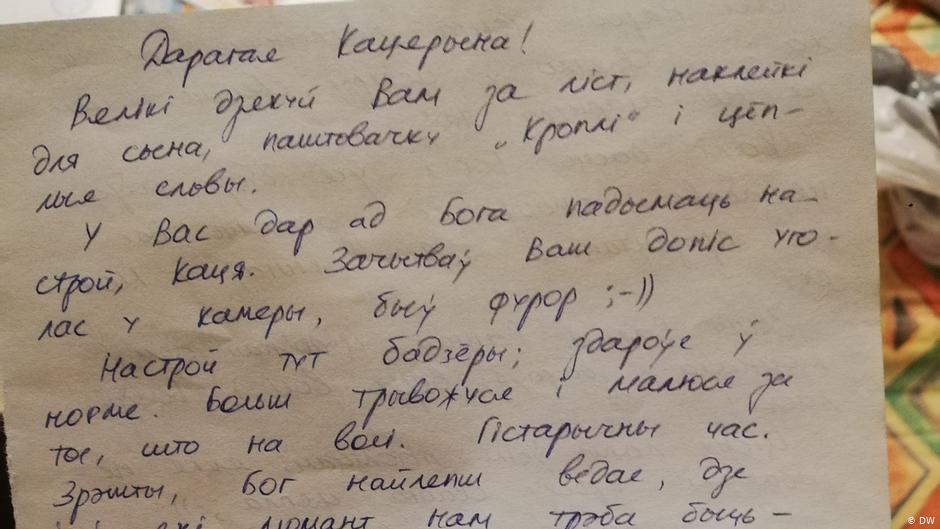 Дарагая Кацерына!
Вялікі дзякуй Вам за ліст, наклейкі
для сына, паштовачку „Кроплі“ і цёп-
лыя словы.
У Вас дар ад Бога падымаць на-
строй, Каця. Зачытваў Ваш допіс уго-
лас у камеры, быў фурор ;-))
Настрой тут бадзёры; здароўе ў
норме. Больш трывожуся і малюся за
тое, што на волі. Гістарычны час.
Зрэшты, Бог найлепш ведае, дзе
момант нам трэба быць –
© DW